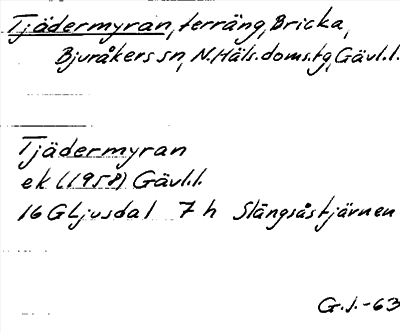 Tjädermyran, terräng, Bricka,
Bjuråkers sn, N.Häls.doms.tg, Gävl.l.
Tjädermyran
ek (1958) Gävl.l.
16G Ljusdal 7 h Slängsåstjärnen
G.J.-63